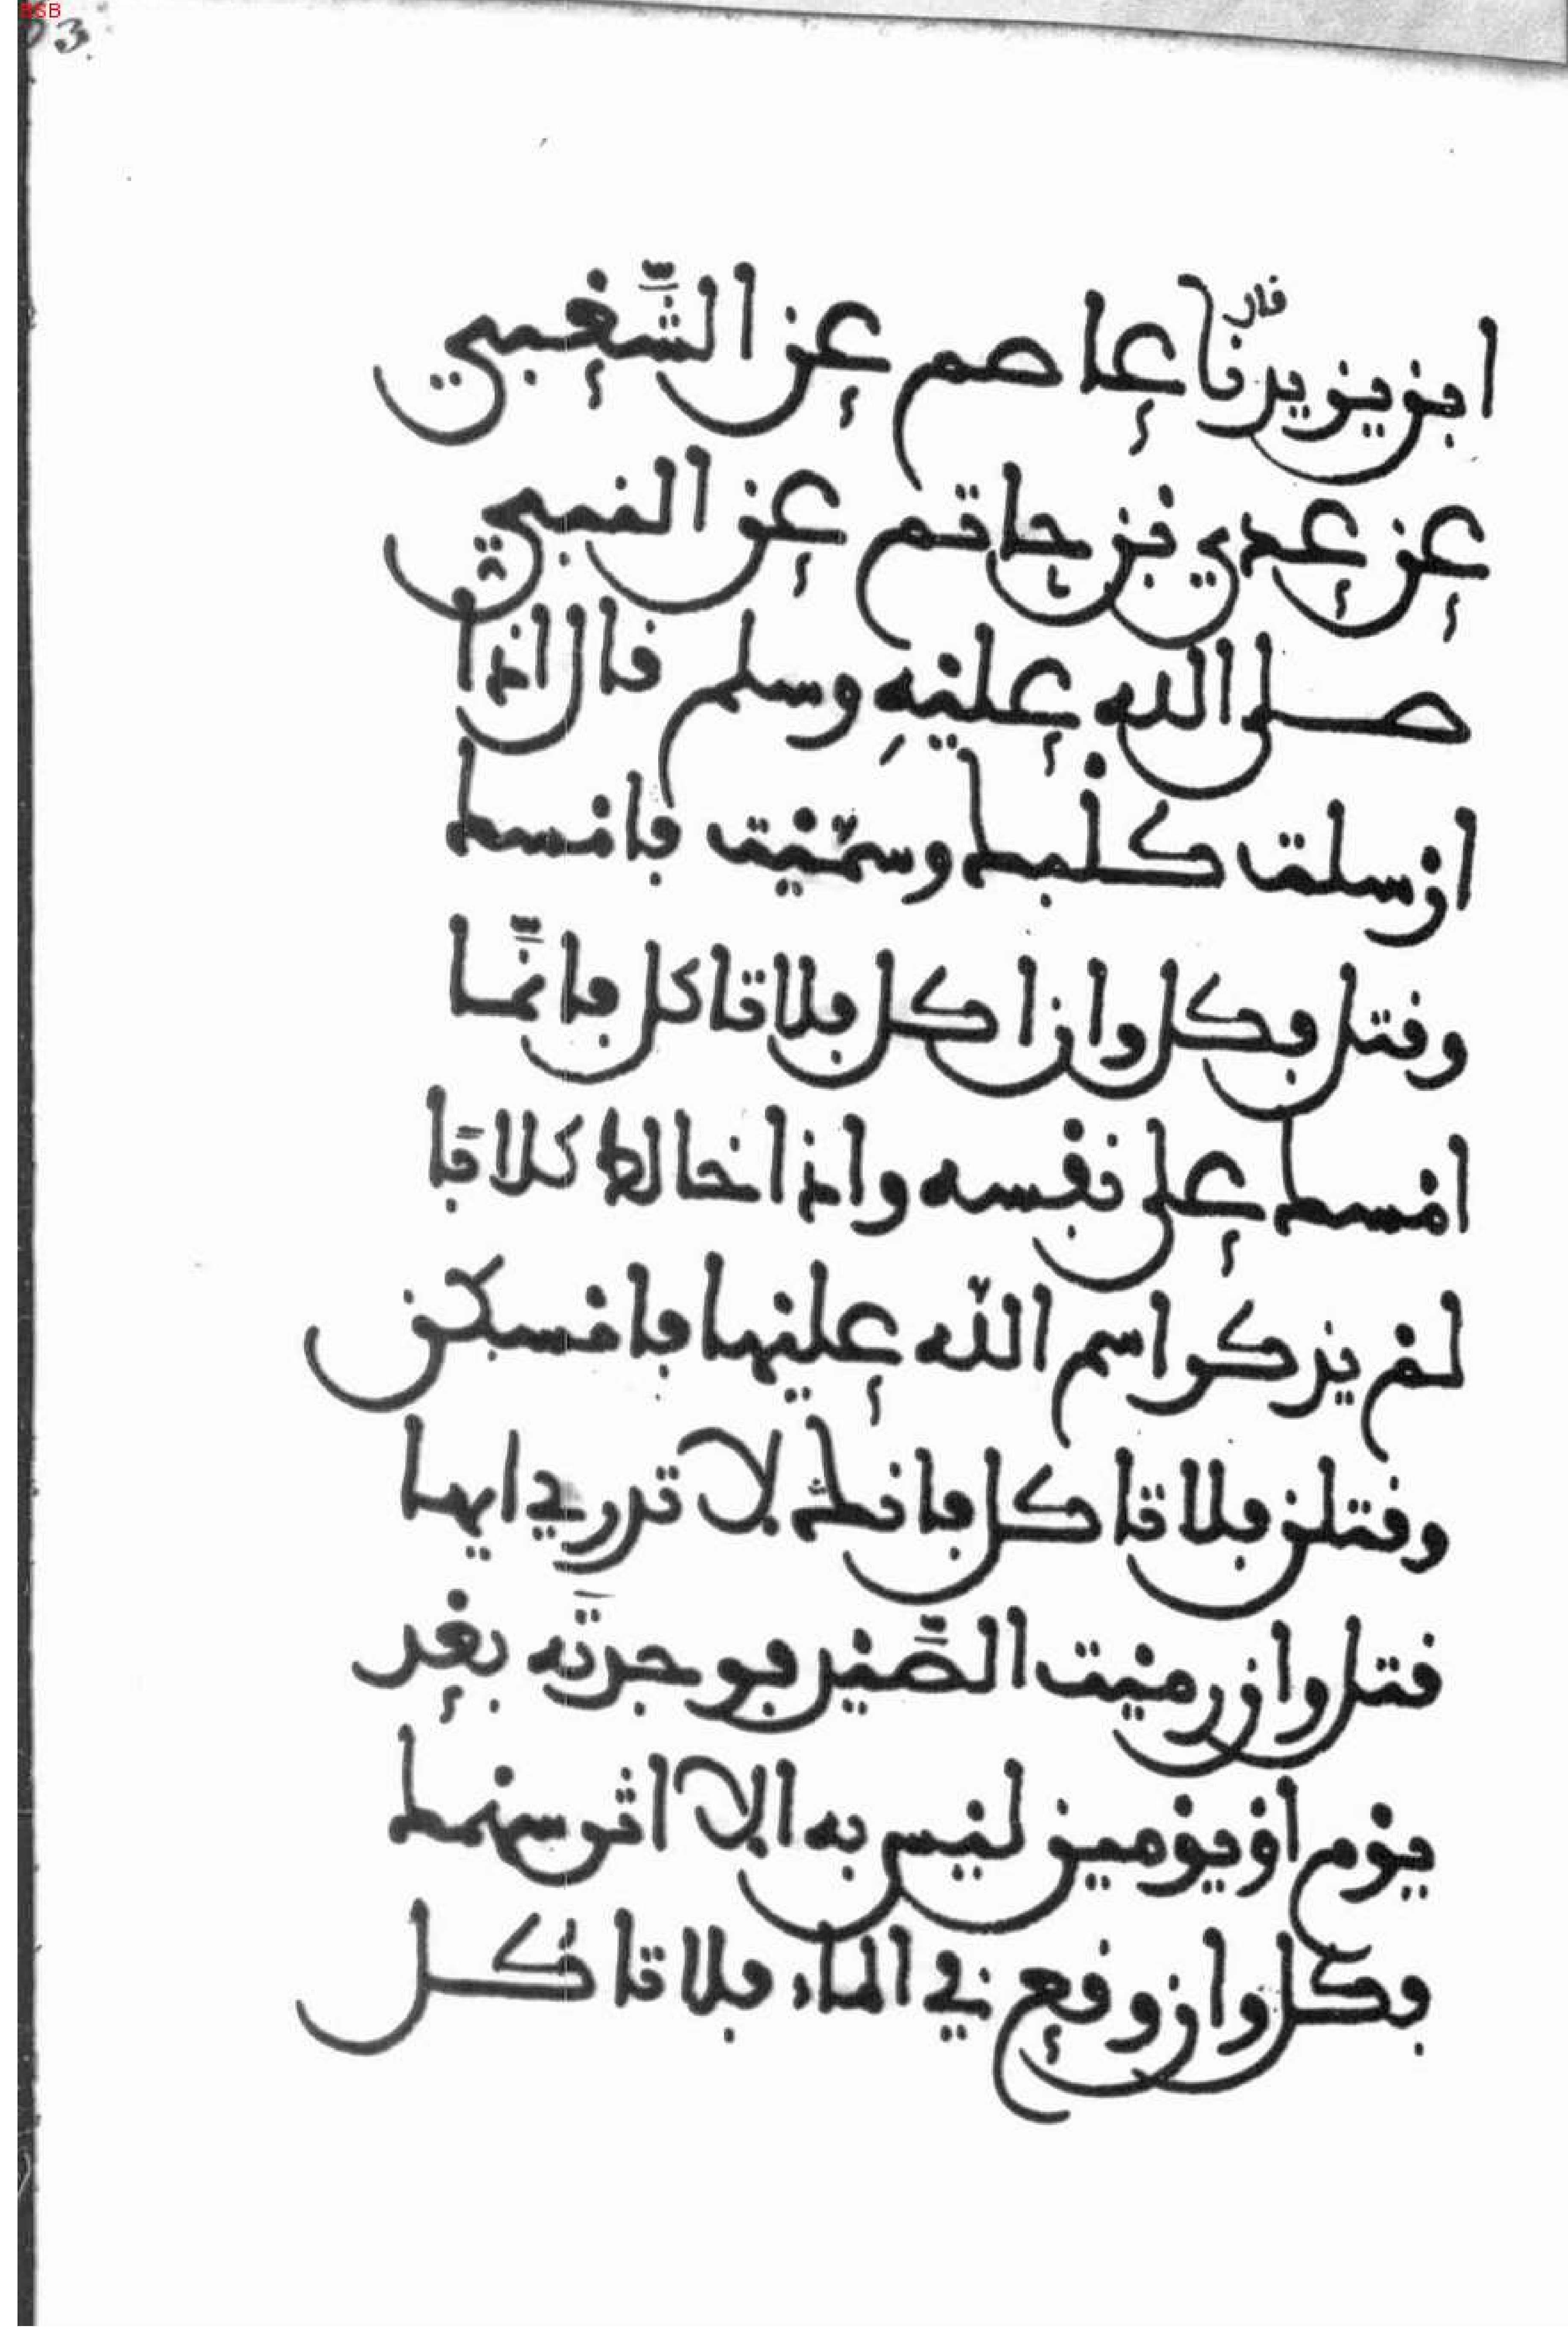 BSB
03
قال
ابن يزيد نا عاصم عن الشَّعْبي
عن عدي بْن حاتم عن النبي
صلى الله عليْهِ وسلم قال اذا
ارْسلت كلْبك وسمّيْت فامْسك
وقتل فكل وان اكل فلا تاكل فانَّما
امْسك على نفْسه واذا خالط كلابا
لمْ يذكر اسم الله عليْها فامْسكن
وقتلن فلا تاكل فانك لا تدري ايها
قتل وان رميْت الصَّيْد فوجدتَه بعْد
يوْم اوْ يوْمين ليْس به الا اثر سهْمك
فكل وان وقع في الماء فلا تاكل